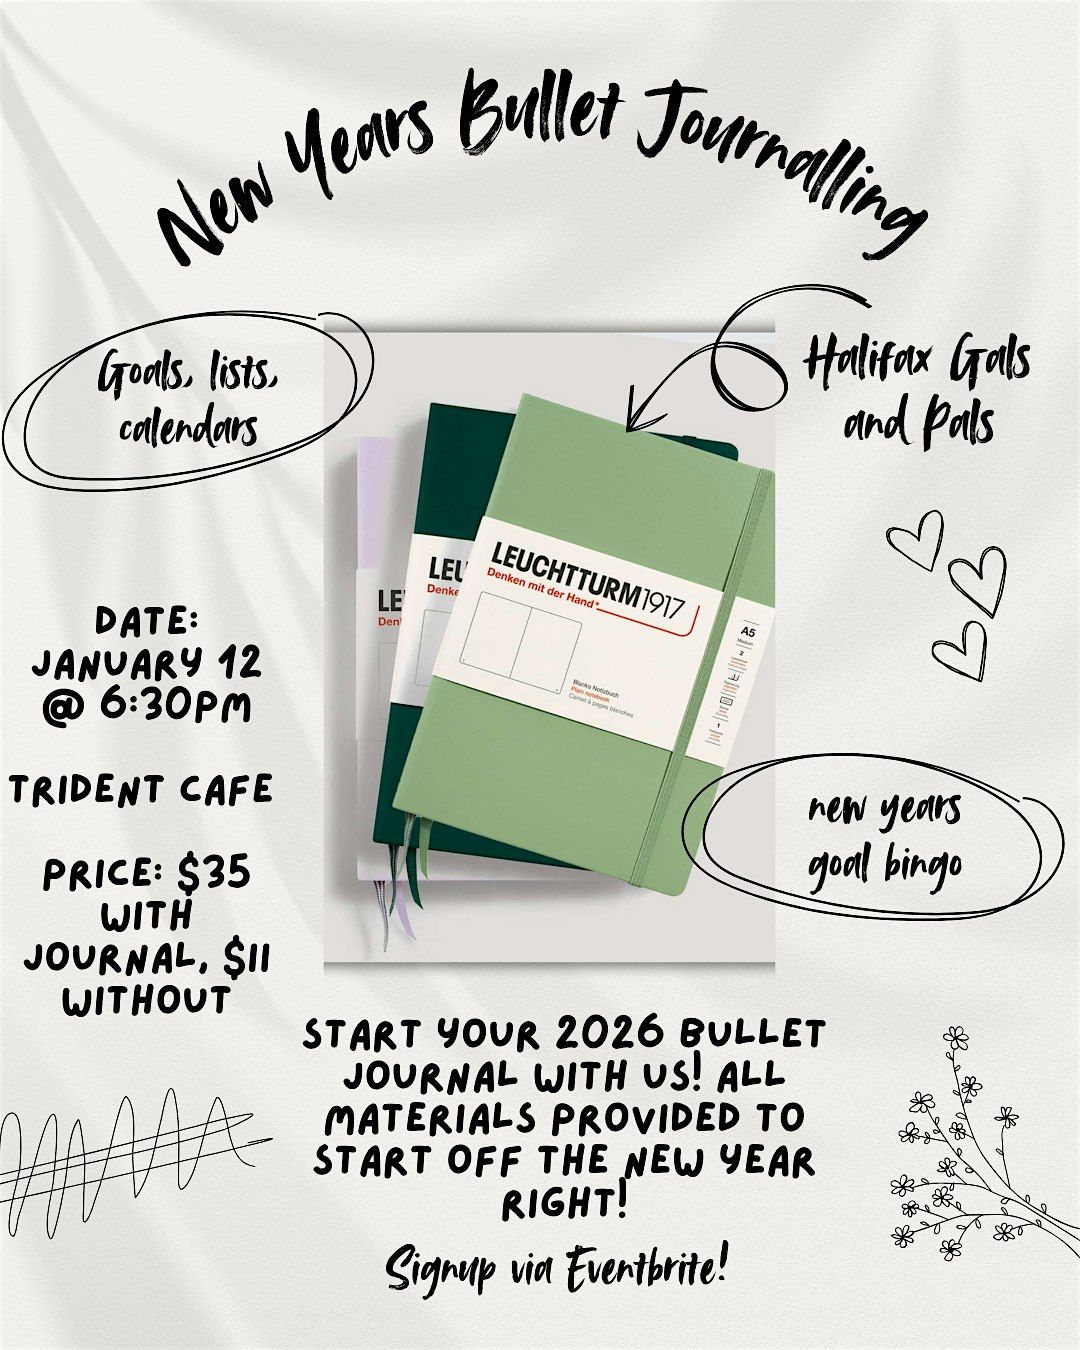 New Years Bullet Journalling
Goals, lists,
calendars
Halifax Gals
and Pals
LEUCHTTURM1917
Denken mit der Hand*
A5
Medium
Blanko Notizbuch
Plain notebook
Carnet à pages blanches
LEU
Denke
LE
Den
DATE:
JANUARY 12
@ 6:30PM
TRIDENT CAFE
PRICE: $35
WITH
JOURNAL, $11
WITHOUT
new years
goal bingo
START YOUR 2026 BULLET
JOURNAL WITH US! ALL
MATERIALS PROVIDED TO
START OFF THE NEW YEAR
RIGHT!
Signup via Eventbrite!